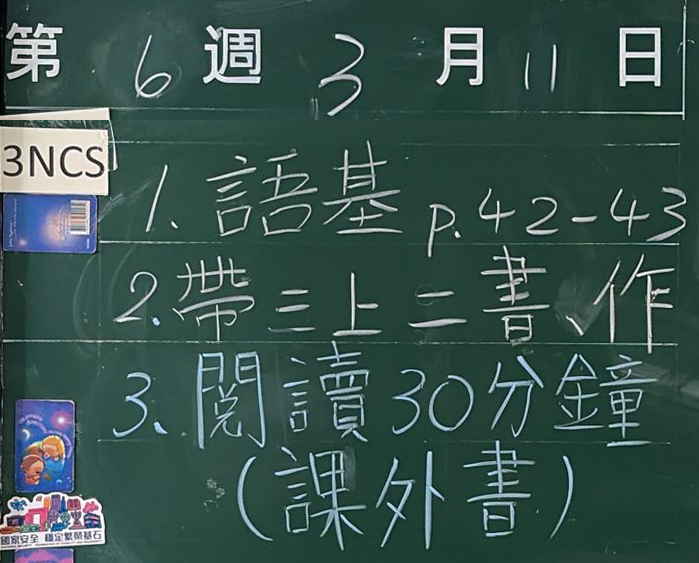 第6週3月11日
3NCS
1. 語基 p.42-43
2. 帶三上二書、作
3. 閱讀30分鐘
(課外書)
國家安全 穩定繁榮基石